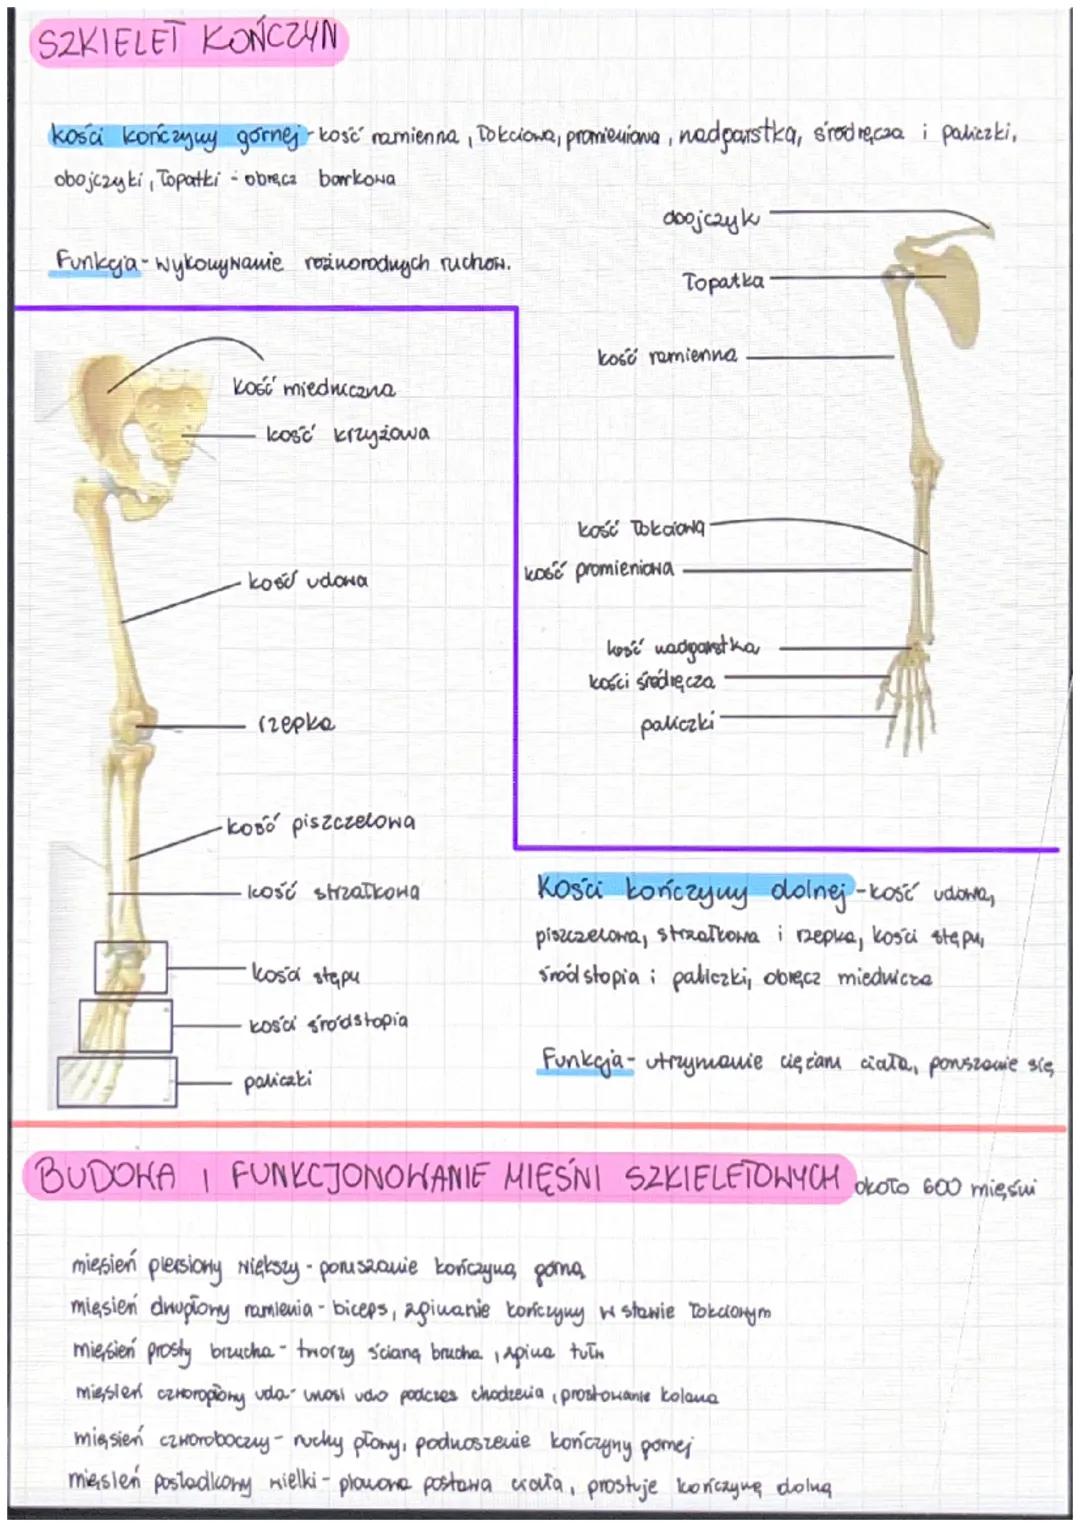 SZKIELET KOŃCZYN
kości kończyny górnej - kość ramienna, łokciowa, promieniowa, nadgarstka, śródręcza i paliczki,
obojczyki, łopatki - obręcz barkowa
Funkcja - wykonywanie różnorodnych ruchów.
obojczyk
łopatka
kość ramienna
kość łokciowa
kość promieniowa
kość nadgarstka
kości śródręcza
paliczki
kość miedniczna
kość krzyżowa
kość udowa
rzepka
kość piszczelowa
kość strzałkowa
kości stępu
kości śródstopia
paliczki
Kości kończyny dolnej - kość udowa,
piszczelowa, strzałkowa i rzepka, kości stępu,
śródstopia i paliczki, obręcz miednicza
Funkcja - utrzymanie ciężaru ciała, poruszanie się
BUDOWA I FUNKCJONOWANIE MIĘŚNI SZKIELETOWYCH około 600 mięśni
mięsień piersiowy większy - poruszanie kończyną górną
mięsień dwugłowy ramienia - biceps, zginanie kończyny w stawie łokciowym
mięsień prosty brzucha - tworzy ścianę brzucha, spina tułw
mięsień czworogłowy uda - unosi udo podczas chodzenia, prostowanie kolana
mięsień czworoboczny - ruchy głowy, podnoszenie kończyny górnej
mięsień pośladkowy wielki - pionowa postawa ciała, prostuje kończynę dolną